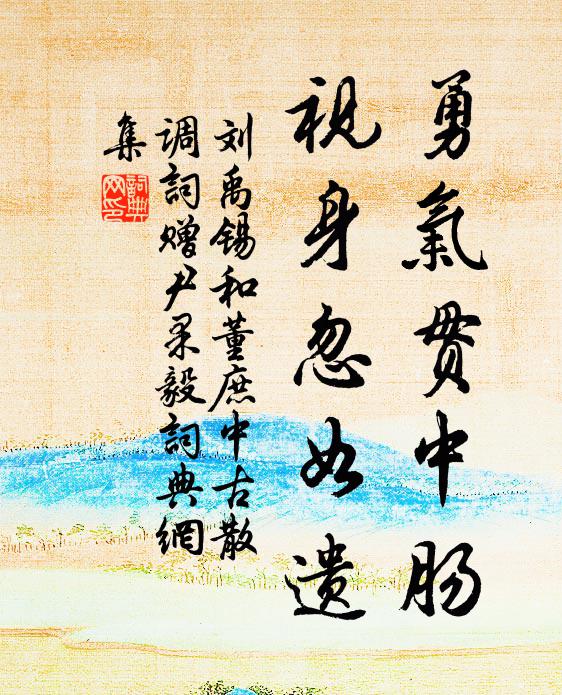 勇氣貫中肠
視身忽如遺
刘禹锡和董庶中古散
调詞赠尹果毅詞典網
集
詞典
网印